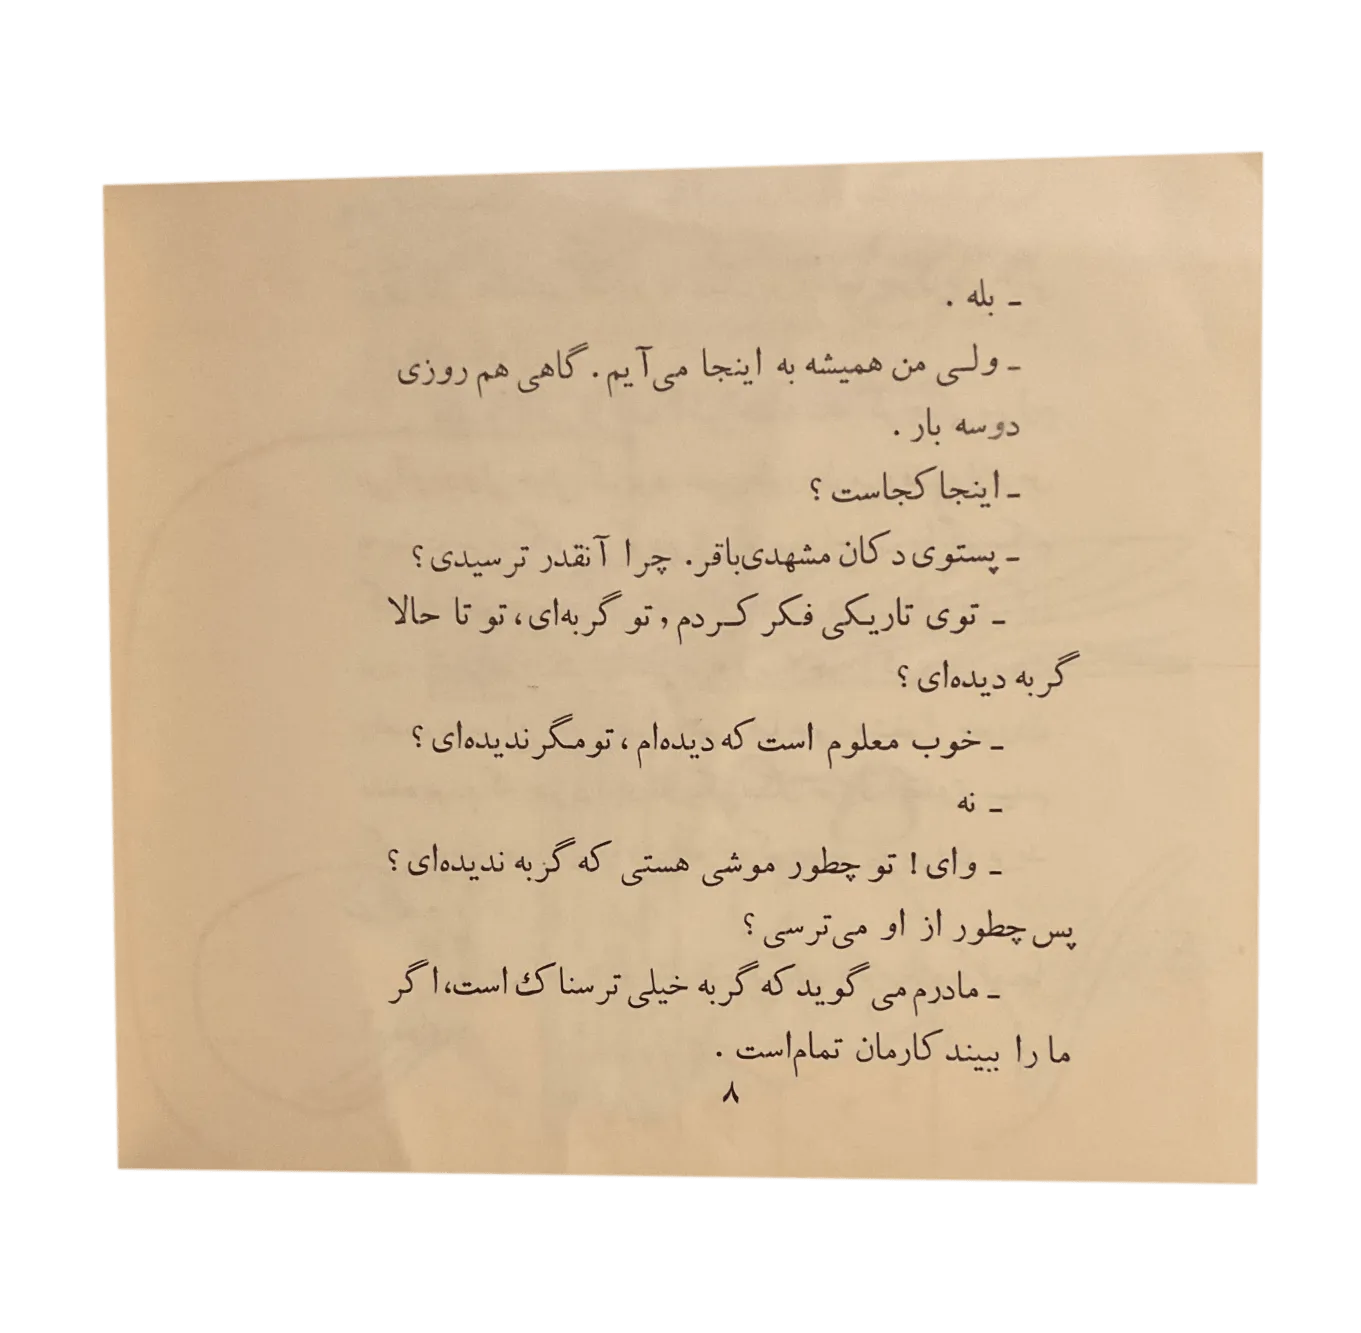 ـ بله .
ـ ولـی من همیشه به اینجا می‌آیم. گاهی هم روزی
دوسه بار .
ـ اینجا کجاست ؟
ـ پستوی دکان مشهدی‌باقر. چرا آنقدر ترسیدی؟
ـ توی تاریکی فکر کـردم , تو گربه‌ای، تو تا حالا
گربه دیده‌ای ؟
ـ خوب معلوم است که دیده‌ام ، تومگر ندیده‌ای ؟
ـ نه
ـ وای! تو چطور موشی هستی که گربه ندیده‌ای ؟
پس چطور از او می‌ترسی ؟
ـ مادرم می گوید که گربه خیلی ترسناك است، اگر
ما را ببیند کارمان تمام‌است .
۸